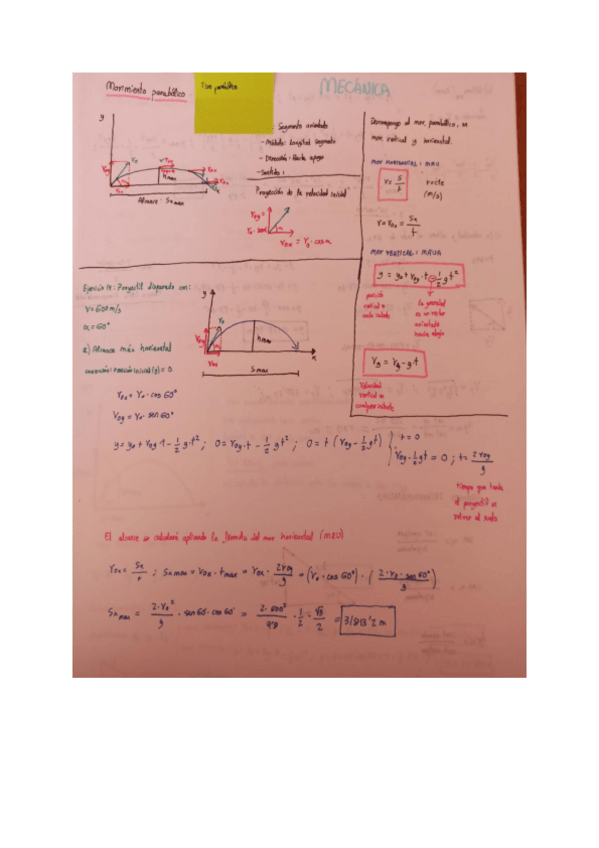 Movimiento parabólico
Tiro parabólico
MECÁNICA
y
Alcance: Sx max
: Segmento orientado
- Módulo: Longitud segmento
- Dirección: Recta apoyo
- Sentido:
Proyección de la velocidad inicial
V0y =
V0·senα
V0x = V0·cosα
Descompongo el mov. parabólico, en
mov. vertical y horizontal.
MOV HORIZONTAL: MRU
v = s/t v=cte
(m/s)
v = V0x = Sx/t
MOV VERTICAL: MRUA
y = y0 + V0y·t - 1/2 g t²
posición
vertical a
cada instante
la gravedad
es un vector
orientado
hacia abajo
Vy = V0y - g·t
Velocidad
vertical en
cualquier instante
Ejercicio 14: Proyectil disparado con:
V = 600 m/s
α = 60°
a) Alcance máx horizontal
condición: Posición inicial (y) = 0
y
V0
V0y
hmax
x
V0x
Smax
V0x = V0·cos 60°
V0y = V0·sen 60°
y = y0 + V0y·t - 1/2 g·t² ; 0 = V0y·t - 1/2 g t² ; 0 = t (V0y - 1/2 g t) t = 0
V0y - 1/2 g t = 0 ; t = 2V0y/g
tiempo que tarda
el proyectil en
volver al suelo
El alcance se calculará aplicando la fórmula del mov horizontal (MRU)
V0x = Sx/t ; Sx max = V0x · t max = V0x · 2V0y/g = (V0·cos 60°) · (2·V0·sen 60°/g)
Sx max = 2·V0²/g · sen 60·cos 60 = 2·600²/9'8 · 1/2 · √3/2 = 31813'2 m